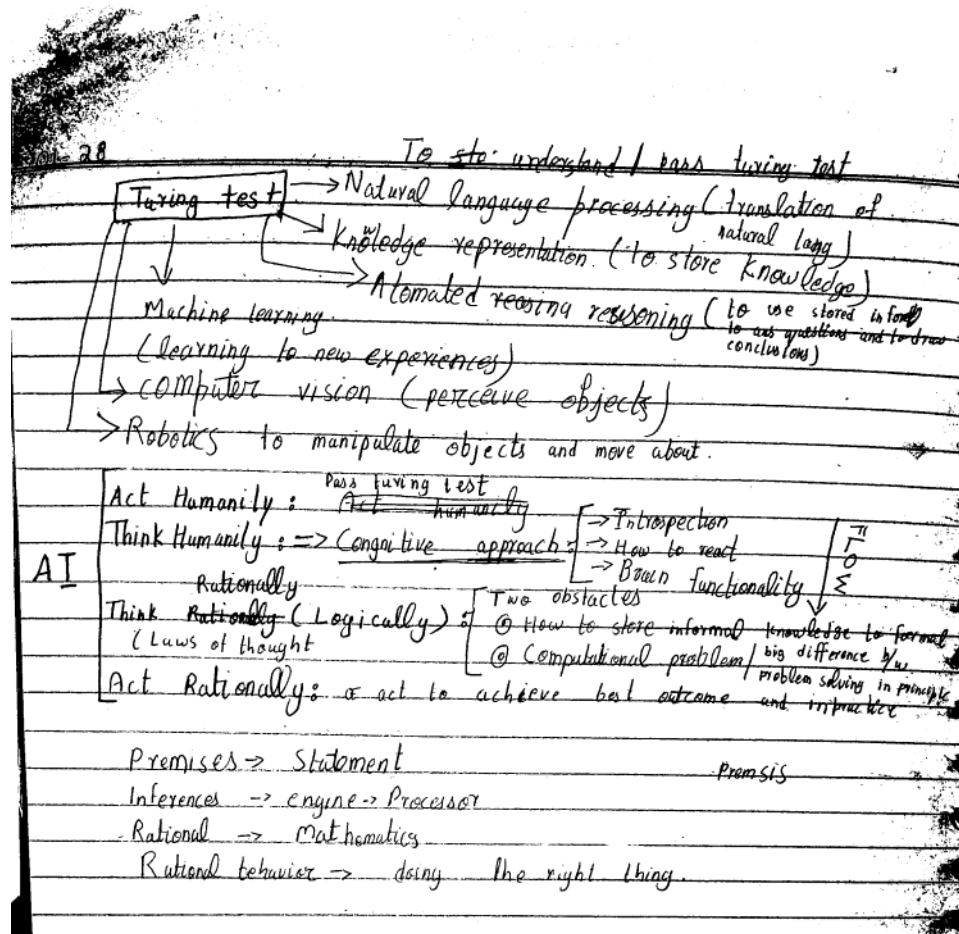 28
To ste understand / pass turing test
Turing test
Natural language processing (translation of natural lang)
Knowledge representation. (to store knowledge)
Atomated reasing resoning (to use stored inform to ans questions and to draw conclusions)
Machine learning.
(learning to new experiences)
computer vision (perceive objects)
Robotics to manipulate objects and move about.
AI
Act Humanily : Pass turing test Act humanily
Think Humanily : => Congnitive approach :
→ Introspection
→ How to react
→ Brain functionality
Think Rationally Rationally (Logically) :
(Laws of thought
Two obstacles
How to store informal knowledge to formal
Computational problem / big difference b/w problem solving in principle and inpractice
Act Rationally : act to achieve best outcome
Premises -> Statement
Premsis
Inferences -> engine -> Processor
Rational -> Mathematics
Rational behavior -> doing the right thing.